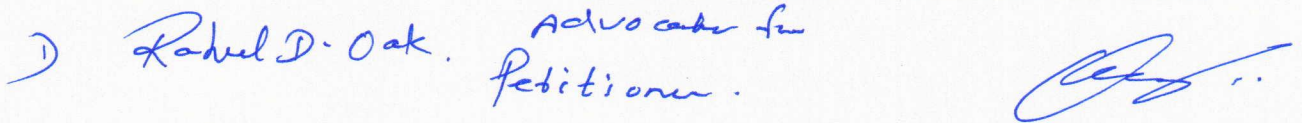 1) Rahul D. Oak. Advocate for
Petitioner.